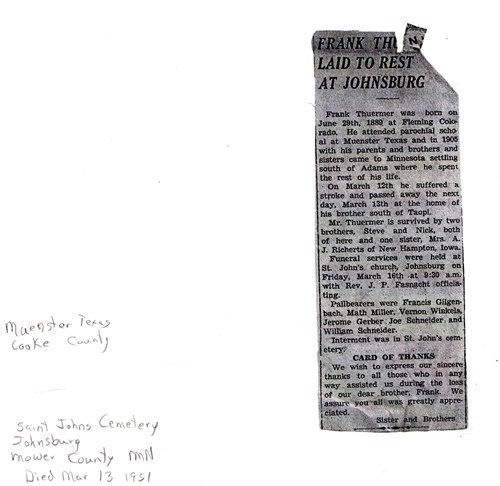 FRANK TH N
LAID TO REST
AT JOHNSBURG
Frank Thuermer was born on
June 29th, 1889 at Fleming Colo-
rado. He attended parochial scho-
al at Muenster Texas and in 1905
with his parents and brothers and
sisters came to Minnesota settling
south of Adams where he spent
the rest of his life.
On March 12th he suffered a
stroke and passed away the next
day, March 13th at the home of
his brother south of Taopi.
Mr. Thuermer is survived by two
brothers, Steve and Nick, both
of here and one sister, Mrs. A.
J. Richerts of New Hampton, Iowa.
Funeral services were held at
St. John's church, Johnsburg on
Friday, March 16th at 9:30 a.m.
with Rev. J. P. Fasnacht officia-
ting.
Pallbearers were Francis Gilgen-
bach, Math Miller, Vernon Winkels,
Jerome Gerber Joe Schneider and
William Schneider.
Interment was in St. John's cem-
etery.
CARD OF THANKS
We wish to express our sincere
thanks to all those who in any
way assisted us during the loss
of our dear brother, Frank. We
assure you all was greatly appre-
ciated.
Sister and Brothers
Muenster Texas
Cooke County
Saint Johns Cemetery
Johnsburg
Mower County MN
Died Mar 13 1951